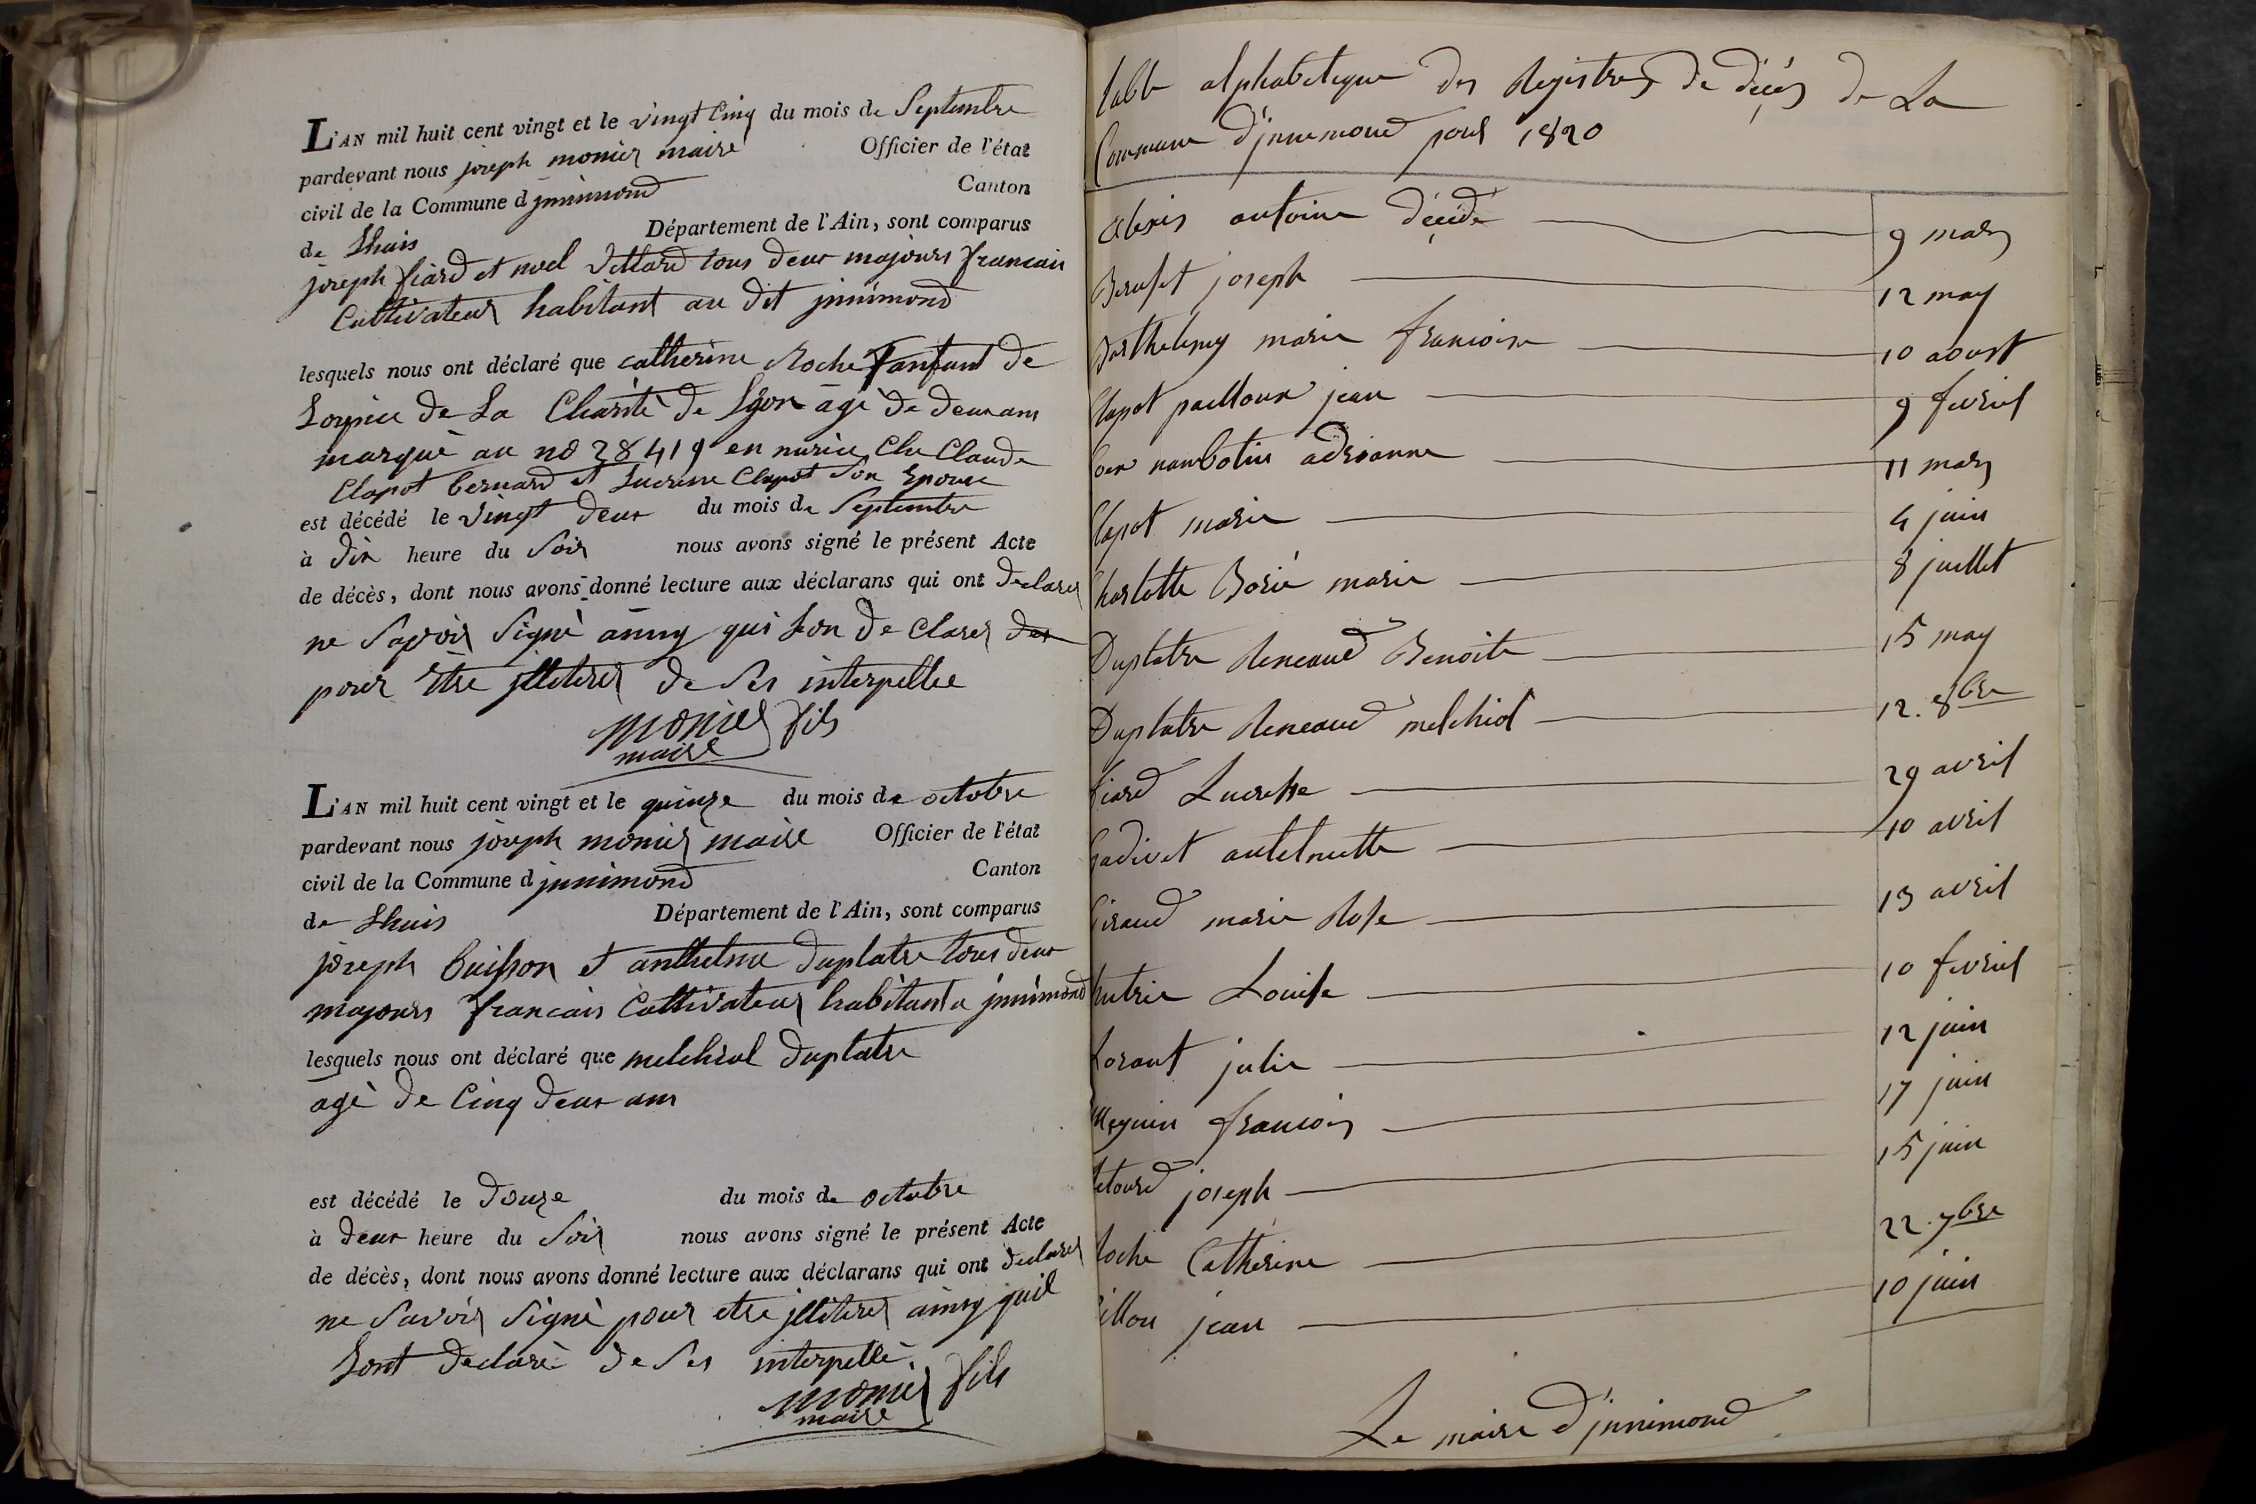 L'AN mil huit cent vingt et le vingt cinq du mois de Septembre
pardevant nous joseph monier maire Officier de l'état
civil de la Commune d jnnimond Canton
de Lhuis Département de l'Ain, sont comparus
joseph fiard et noel Vettard tous deux majours francais
Cultivateur habitant au dit jnnimond
lesquels nous ont déclaré que catherine Roche anfant de
Lospice de La Charité de Lÿon agé de deux ans
marqué au no 28419 en nurice Che Claude
Clapot bernard et Lucresse Clapot Son Epouse
est décédé le vingt deux du mois de Septembre
à dix heure du Soir nous avons signé le présent Acte
de décès, dont nous avons donné lecture aux déclarans qui ont declarer
ne Savoir Signé ainsy qui Lon de clarer
pour Etre jlliterer de Ses interpellee
monier fils
maire
L'AN mil huit cent vingt et le quinze du mois de octobre
pardevant nous joseph monier maire Officier de l'état
civil de la Commune d jnnimond Canton
de Lhuis Département de l'Ain, sont comparus
joseph buisson et anthelme duplatre tous deux
majours francais Cultivateur habitant a jnnimond
lesquels nous ont déclaré que melchiol duplatre
agé de Cinq deux ans
est décédé le douze du mois de octobre
à deux heure du Soir nous avons signé le présent Acte
de décès, dont nous avons donné lecture aux déclarans qui ont declarer
ne Savoir Signé pour etre jlliterer ainsy quil
Lont declaré de Ses interpellé
monier fils
maire
table alphabetique des Registres de décés de La
Commune d'jnnimond pour 1820
alexis antoine décédé 9 mars
Berufet joseph 12 may
Barthelemy marie francoise 10 aoust
Clapot pailloux jean 9 fevrier
adrianne 11 mars
Clapot marie 4 juin
Charlotte Borié marie 8 juillet
Duplatre Reneaud Benoite 15 may
Duplatre Reneaud melchiol 12. 8bre
fiard Lucresse 29 avril
Gadivet antelmette 10 avril
Giraud marie Rose 13 avril
Louise 10 fevrier
Lorant julie 12 juin
francois 17 juin
joseph 15 juin
Roche Catherine 22. 7bre
jean 10 juin
Le maire d'jnnimond